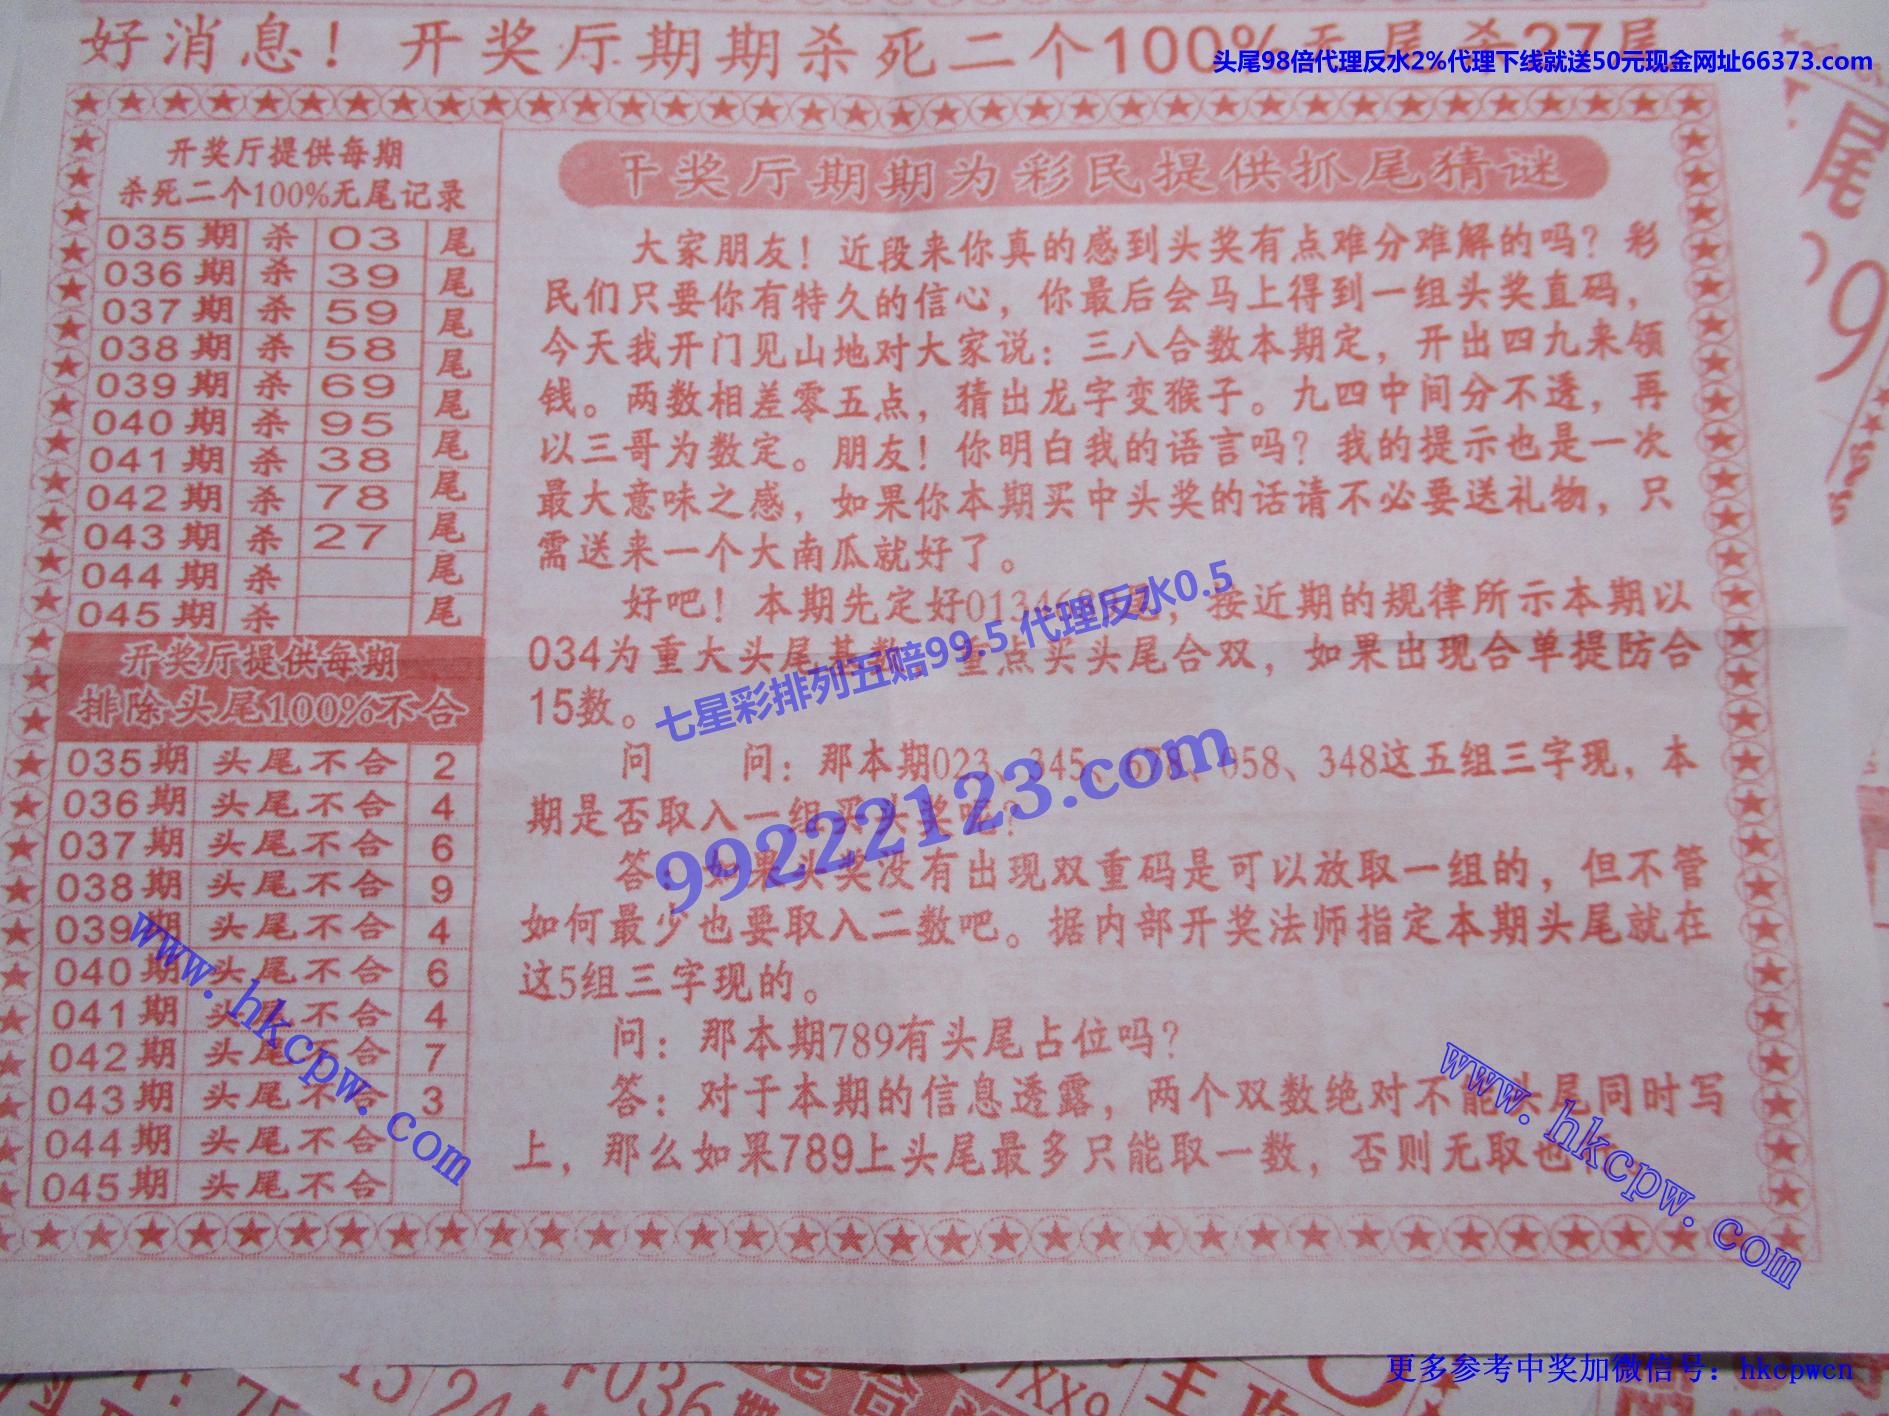 好消息！开奖厅期期杀死二个100%无尾杀27尾
头尾98倍代理反水2%代理下线就送50元现金网址66373.com
开奖厅提供每期
杀死二个100%无尾记录
035期 杀 03 尾
036期 杀 39 尾
037期 杀 59 尾
038期 杀 58 尾
039期 杀 69 尾
040期 杀 95 尾
041期 杀 38 尾
042期 杀 78 尾
043期 杀 27 尾
044期 杀 尾
045期 杀 尾
开奖厅提供每期
排除头尾100%不合
035期 头尾不合 2
036期 头尾不合 4
037期 头尾不合 6
038期 头尾不合 9
039期 头尾不合 4
040期 头尾不合 6
041期 头尾不合 4
042期 头尾不合 7
043期 头尾不合 3
044期 头尾不合
045期 头尾不合
开奖厅期期为彩民提供抓尾猜谜
大家朋友！近段来你真的感到头奖有点难分难解的吗？彩
民们只要你有特久的信心，你最后会马上得到一组头奖直码，
今天我开门见山地对大家说：三八合数本期定，开出四九来领
钱。两数相差零五点，猜出龙字变猴子。九四中间分不透，再
以三哥为数定。朋友！你明白我的语言吗？我的提示也是一次
最大意味之感，如果你本期买中头奖的话请不必要送礼物，只
需送来一个大南瓜就好了。
好吧！本期先定好01346 尾，按近期的规律所示本期以
034为重大头尾基数，重点买头尾合双，如果出现合单提防合
15数。
问 问：那本期023、345、678、058、348这五组三字现，本
期是否取入一组买头奖呢？
答：如果头奖没有出现双重码是可以放取一组的，但不管
如何最少也要取入二数吧。据内部开奖法师指定本期头尾就在
这5组三字现的。
问：那本期789有头尾占位吗？
答：对于本期的信息透露，两个双数绝对不能头尾同时写
上，那么如果789上头尾最多只能取一数，否则无取也
七星彩排列五赔99.5 代理反水0.5
99222123.com
www.hkcpw.com
www.hkcpw.com
尾
更多参考中奖加微信号：hkcpwcn